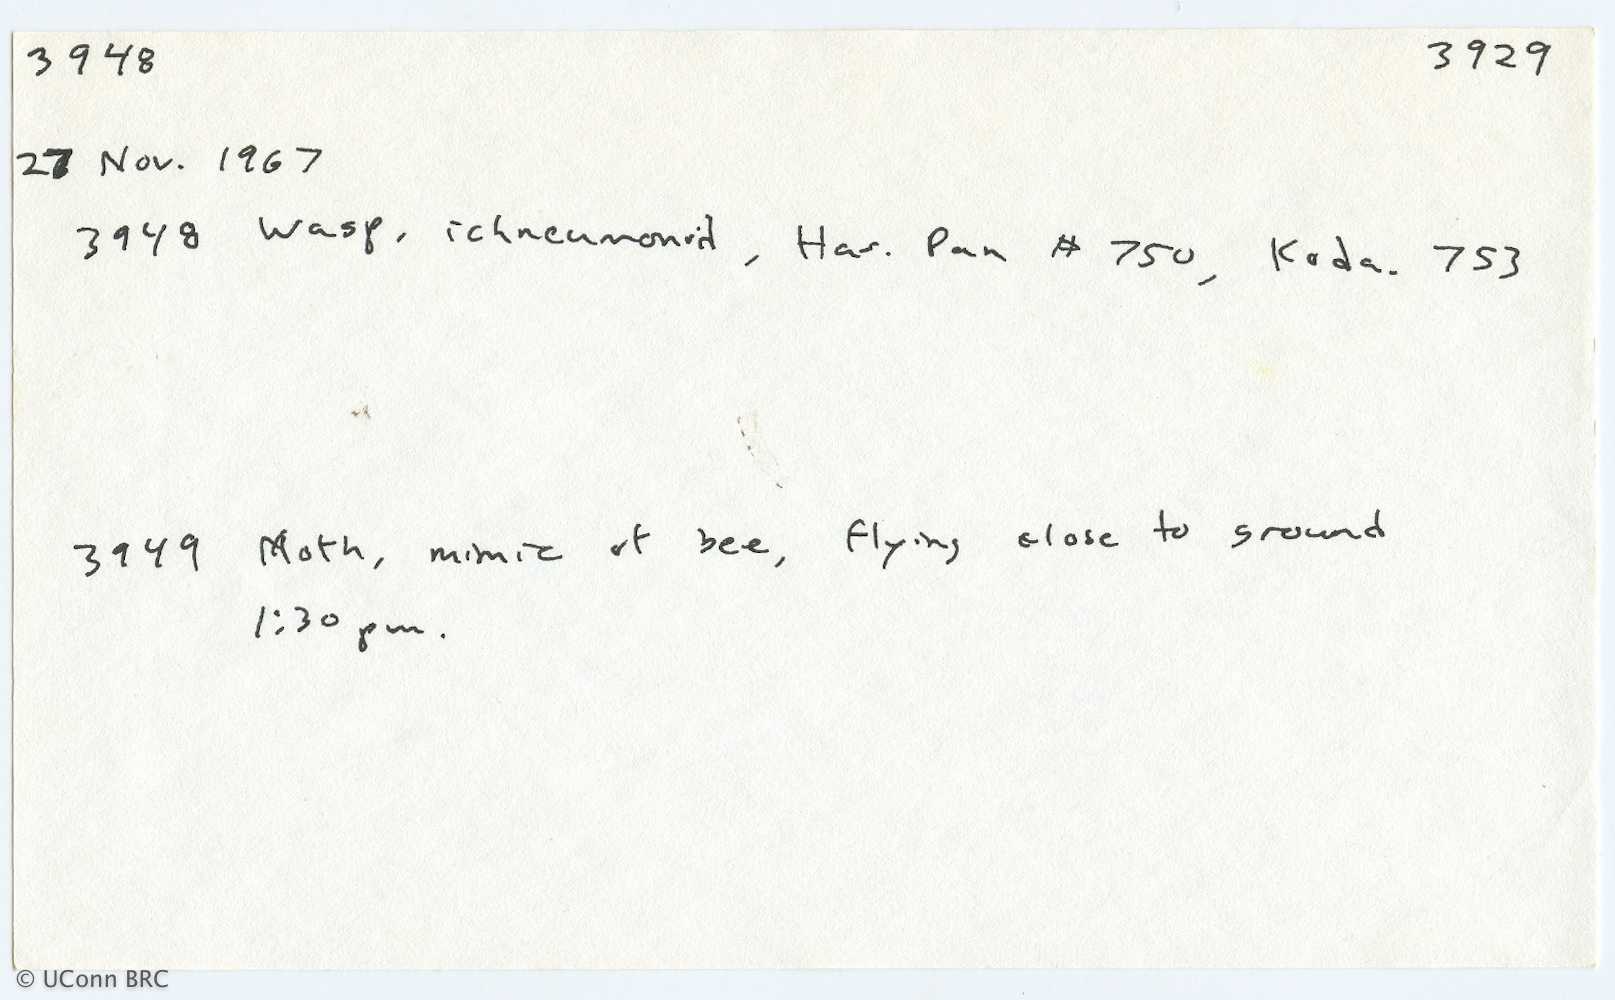 3948 3929
27 Nov. 1967
3948 Wasp, ichneumonid, Har. Pan # 750, Koda. 753
3949 Moth, mimic of bee, flying close to ground
1:30 pm.
© UConn BRC